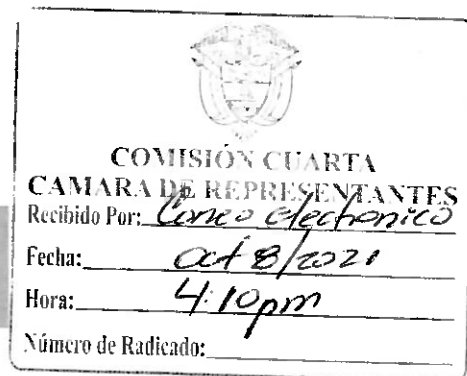 COMISIÓN CUARTA
CAMARA DE REPRESENTANTES
Recibido Por: Correo electronico
Fecha: Oct 8/2021
Hora: 4:10pm
Número de Radicado: